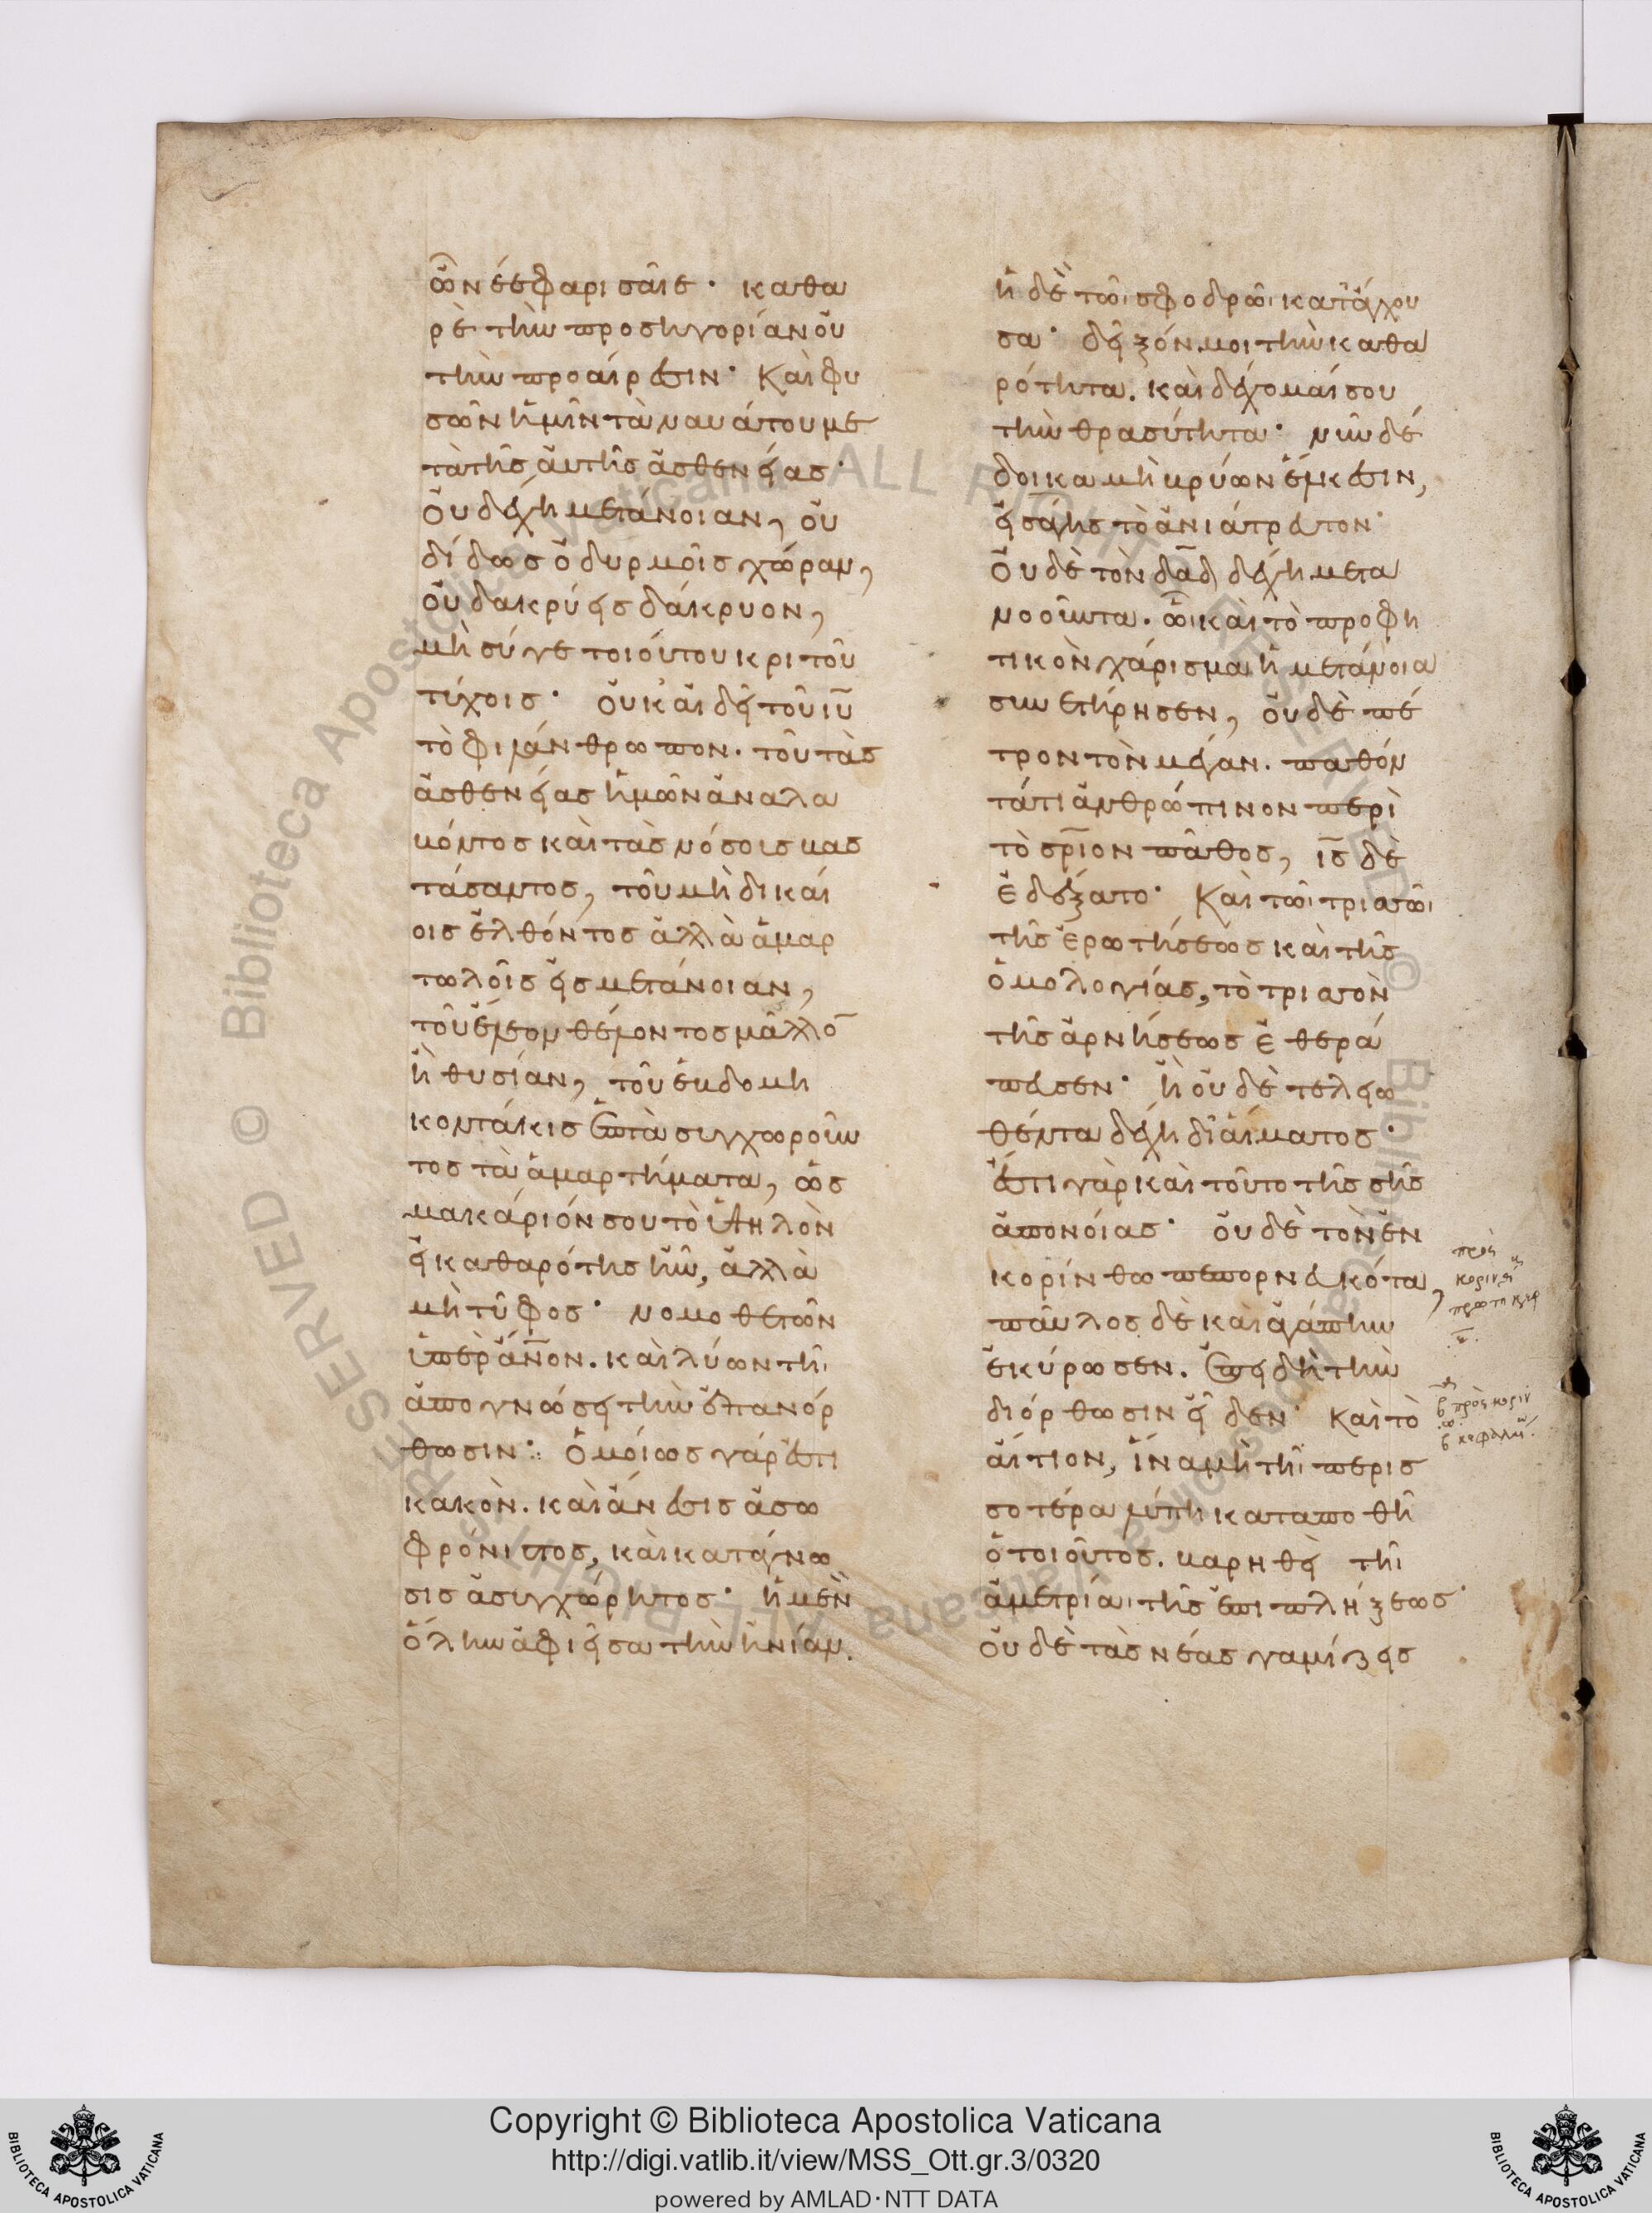 ὦν ὁ σὲ φαρισαῖε· καθα
ρὲ τὴν προσηγορίαν οὐ
τὴν προαίρεσιν· Καὶ φυ
σῶν ἡμῖν τὰ ναυάτου με
τὰ τῆς αὐτῆς ἀσθενείας·
Οὐ δέχη μετάνοιαν, οὐ
δίδως ὀδυρμοῖς χώραν,
οὐ δακρύεις δάκρυον,
μὴ σύγε τοιούτου κριτοῦ
τύχοις· οὐκ αἰδεῖ τοῦ ιυ
τὸ φιλάνθρωπον. τοῦ τὰς
ἀσθενείας ἡμῶν ἀναλα
βόντος καὶ τὰς νόσοις βασ
τάσαντος, τοῦ μὴ δικαί
οις ἐλθόντος ἀλλὰ ἁμαρ
τωλοῖς εἰς μετάνοιαν,
τοῦ ἔλεον θέλοντος μᾶλλο̅
ἢ θυσίαν, τοῦ ἑβδομη
κοντάκις ἑπτὰ συγχωροῦν
τος τὰ ἁμαρτήματα, ὡς
μακάριόν σου τὸ ὑψηλὸν
εἰ καθαρότης ἦν, ἀλλὰ
μὴ τῦφος· νομοθετῶν
ὑπὲρ ἄνον. καὶ λύων τῆι
ἀπογνώσει τὴν ἐπανόρ
θωσιν· Ὁμοίως γάρ ἐστι
κακὸν. καὶ ἄνεσις ἀσω
φρόνιστος, καὶ κατάγνω
σις ἀσυγχώρητος· ἡ μὲν
ὅλην ἀφιεῖσα τὴν ἡνίαν.
ἡ δὲ τῶι σφοδρῶι κατάγχου
σα· δεῖξόν μοι τὴν καθα
ρότητα. καὶ δέχομαί σου
τὴν θρασύτητα· νῦν δέ
δοικα μὴ βρύων ἕλκεσιν,
εἰσάγης τὸ ἀνιάτρευτον·
Οὐδὲ τὸν δαδ δέχη μετα
νοοῦντα. ὧι καὶ τὸ προφη
τικὸν χάρισμα ἡ μετάνοια
συνετήρησεν, οὐδὲ πέ
τρον τὸν μέγαν. παθόν
τά τι ἀνθρώπινον περὶ
τὸ σριον πάθος, ις δὲ
ἐδέξατο· Καὶ τῶι τρισσῶι
τῆς ἐρωτήσεως καὶ τῆς
ὁμολογίας, τὸ τρισσὸν
τῆς ἀρνήσεως ἐθερά
πευσεν· ἢ οὐδὲ τελειω
θέντα δέχη δι αἵματος·
ἔστι γὰρ καὶ τοῦτο τῆς σῆς
ἀπονοίας· οὐδὲ τὸν ἐν
κορίνθω πεπορνευκότα,
παῦλος δὲ καὶ ἀγάπην
ἐκύρωσεν. ἐπειδὴ τὴν
διόρθωσιν εἶδεν· Καὶ τὸ
αἴτιον, ἵνα μὴ τῆι περισ
σοτέρα λύπη καταποθῆ
ὁ τοιοῦτος. βαρηθεὶ τῆι
ἀμετρίαι τῆς ἐπιπλήξεως·
οὐδὲ τὰς νέας γαμίζεις
Copyright © Biblioteca Apostolica Vaticana
http://digi.vatlib.it/view/MSS_Ott.gr.3/0320
powered by AMLAD·NTT DATA